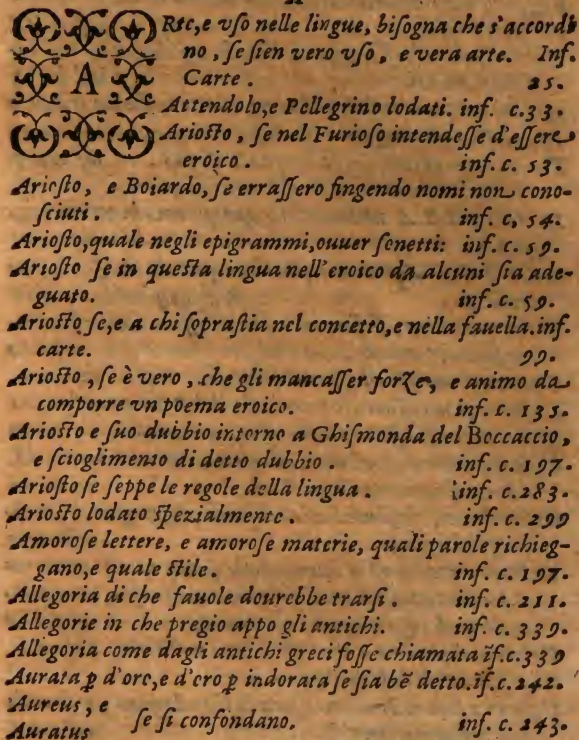 ARte,e vſo nelle lingue, biſogna che s'accordi
no, ſe ſien vero vſo, e vera arte. Inf.
Carte. 25.
Attendolo,e Pellegrino lodati. inf. c.33.
Arioſto, ſe nel Furioſo intendeſſe d'eſſere
eroico. inf. c. 53.
Arioſto, e Boiardo, ſe erraſſero fingendo nomi non cono-
ſciuti. inf. c, 54.
Arioſto,quale negli epigrammi,ouuer ſonetti: inf. c. 59.
Arioſto ſe in queſta lingua nell'eroico da alcuni ſia ade-
guato. inf. c. 59.
Arioſto ſe,e a chi ſopraſtia nel concetto,e nella fauella.inf.
carte. 99.
Arioſto, ſe è vero, che gli mancaſſer forze, e animo da
comporre vn poema eroico. inf. c. 135.
Arioſto e ſuo dubbio intorno a Ghiſmonda del Boccaccio,
e ſcioglimento di detto dubbio. inf. c. 197.
Arioſto ſe ſeppe le regole della lingua. inf. c.283.
Arioſto lodato ſpezialmente. inf. c. 299
Amoroſe lettere, e amoroſe materie, quali parole richieg-
gano,e quale ſtile. inf. c. 197.
Allegoria di che fauole dourebbe trarſi. inf. c. 211.
Allegorie in che pregio appo gli antichi. inf. c. 339.
Allegoria come dagli antichi greci foſſe chiamata ĩf.c.339
Aurata p d'oro,e d'oro p indorata ſe ſia bẽ detto.ĩf.c.242.
Aureus, e
Auratus ſe ſi confondano. inf. c. 243.